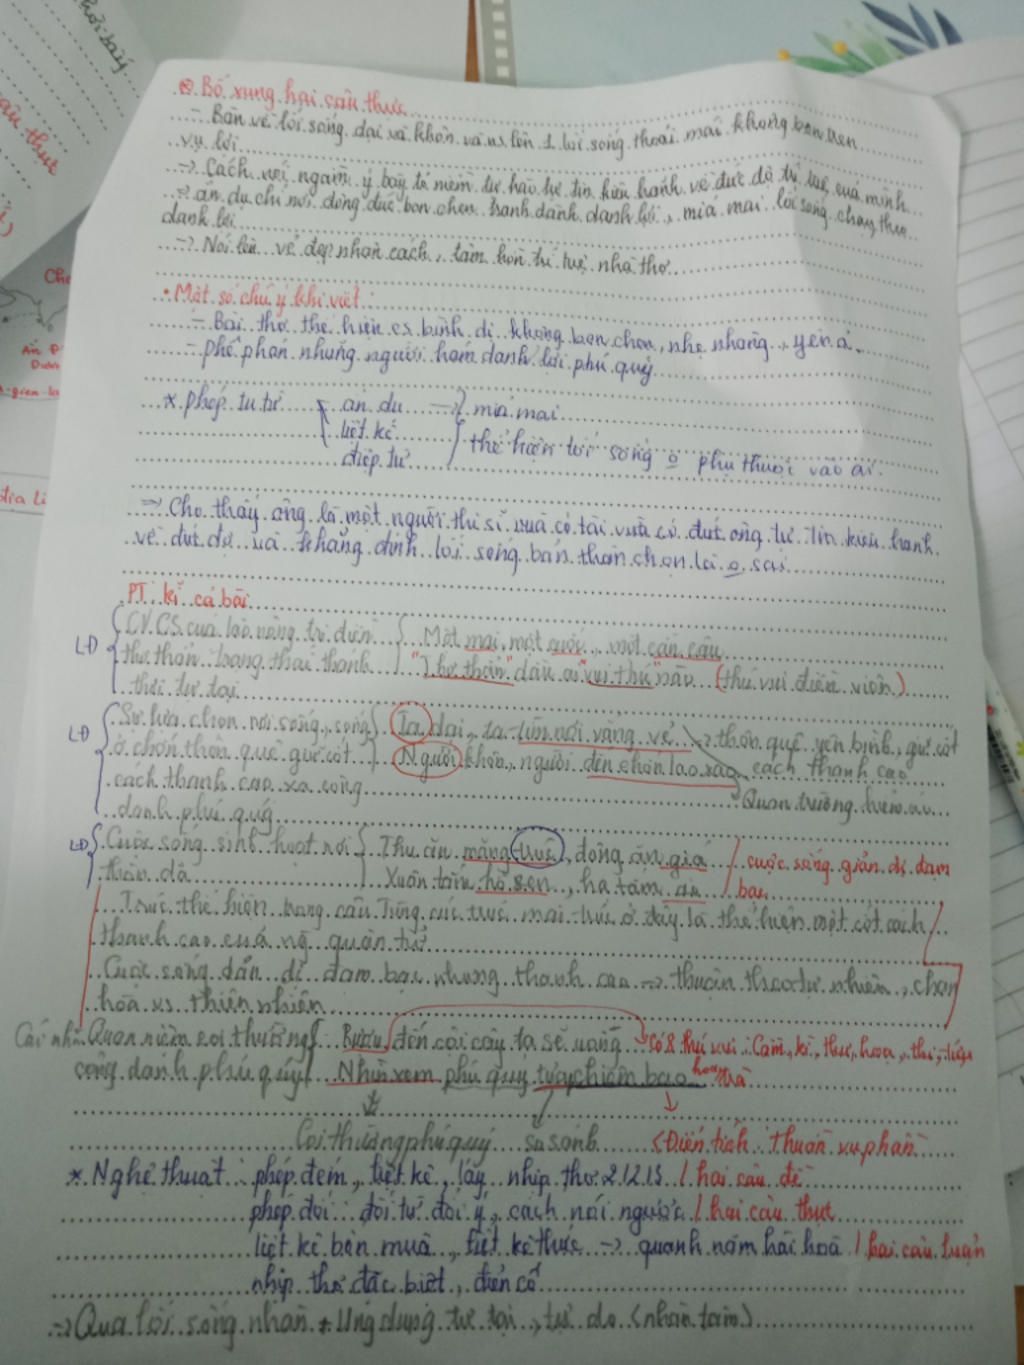 ⊗ Bổ xung hai câu thực
- Bàn về lối sống dại và khôn và us lên 1 lối sống thoải mái không bon chen
vụ lợi
→ Cách nói ngầm ý bày tỏ niềm tự hào tự tin kiêu hãnh về đức độ trí tuệ của mình
→ ẩn dụ chỉ nơi đông đúc bon chen tranh dành danh lợi, mỉa mai lối sống chạy theo
danh lợi
→ Nói lên vẻ đẹp nhân cách, tâm hồn trí tuệ nhà thơ
• Một số chú ý khi viết:
- Bài thơ thể hiện cs bình dị không bon chen, nhẹ nhàng, yên ả
- phê phán những người ham danh lợi phú quý
* phép tu từ ẩn dụ → mỉa mai
liệt kê
điệp từ thể hiện lối sống o phụ thuộc vào ai
⇒ Cho thấy ông là một người thi sĩ vừa có tài vừa có đức ông tự tin kiêu hãnh
về đức độ và khẳng định lối sống bản thân chọn là o sai
PT kĩ cả bài
LĐ CV CS của lão nông tri điền Một mai, một cuốc, một cần câu
thơ thẩn trong thái thanh "Thơ thẩn" dầu ai "vui thú" nào (thú vui điền viên)
thơi tự tại
LĐ Sự lựa chọn nơi sống, sống Ta dại, ta tìm nơi vắng vẻ → thôn quê yên bình, giữ cốt
ở chốn thôn quê giữ cốt Người khôn, người đến chốn lao xao cách thanh cao
cách thanh cao xa công Quan trường hiểm ác
danh phú quý
LĐ Cuộc sống sinh hoạt nơi Thu ăn măng trúc, đông ăn giá cuộc sống giản dị đạm
thôn dã Xuân tắm hồ sen, hạ tắm ao bạc
Trúc thể hiện trong câu Tùng cúc trúc mai trúc ở đây là thể hiện một cốt cách
thanh cao của ng quân tử
Cuộc sống dân dĩ đạm bạc nhưng thanh cao → thuận theo tự nhiên, chan
hòa vs thiên nhiên
Cái nhìn Quan niệm coi thường Rượu đến cội cây ta sẽ uống có 8 thú vui: Cầm, kì, thư, họa, thi, tửu
công danh phú quý Nhìn xem phú quý tựa chiêm bao hoa trà
Coi thường phú quý so sánh < Điển tích: thuần vu phần
* Nghệ thuật: phép đếm, liệt kê, láy nhịp thơ 2/2/3 / hai câu đề
phép đối: đối từ đối ý, cách nói ngược / hai câu thực
liệt kê bốn mùa, liệt kê thức → quanh năm hài hoà / hai câu luận
nhịp thơ đặc biệt, điển cố
→ Qua lối sống nhàn + ung dung tự tại, tự do (nhàn tâm)